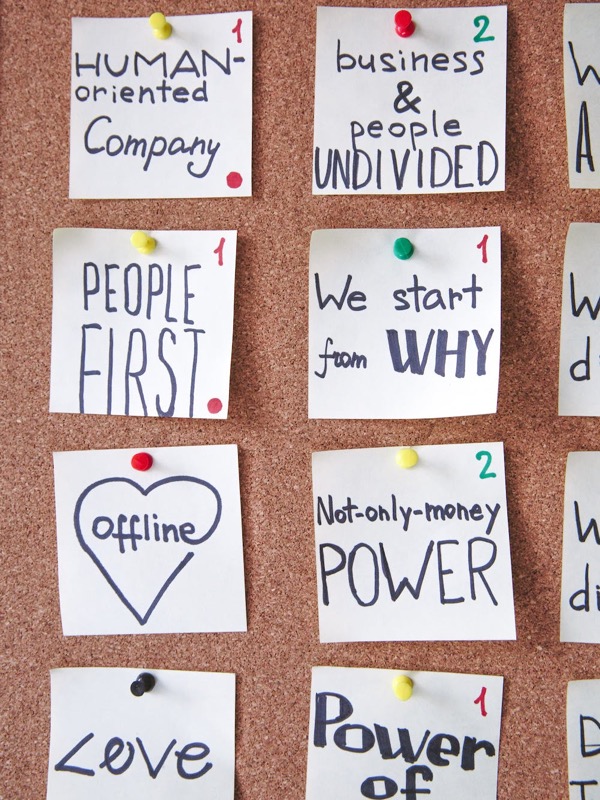 1
HUMAN-
oriented
Company
2
business
&
people
UNDIVIDED
1
PEOPLE
FIRST
1
We start
from WHY
Offline
2
Not-only-money
POWER
Love
1
Power
of